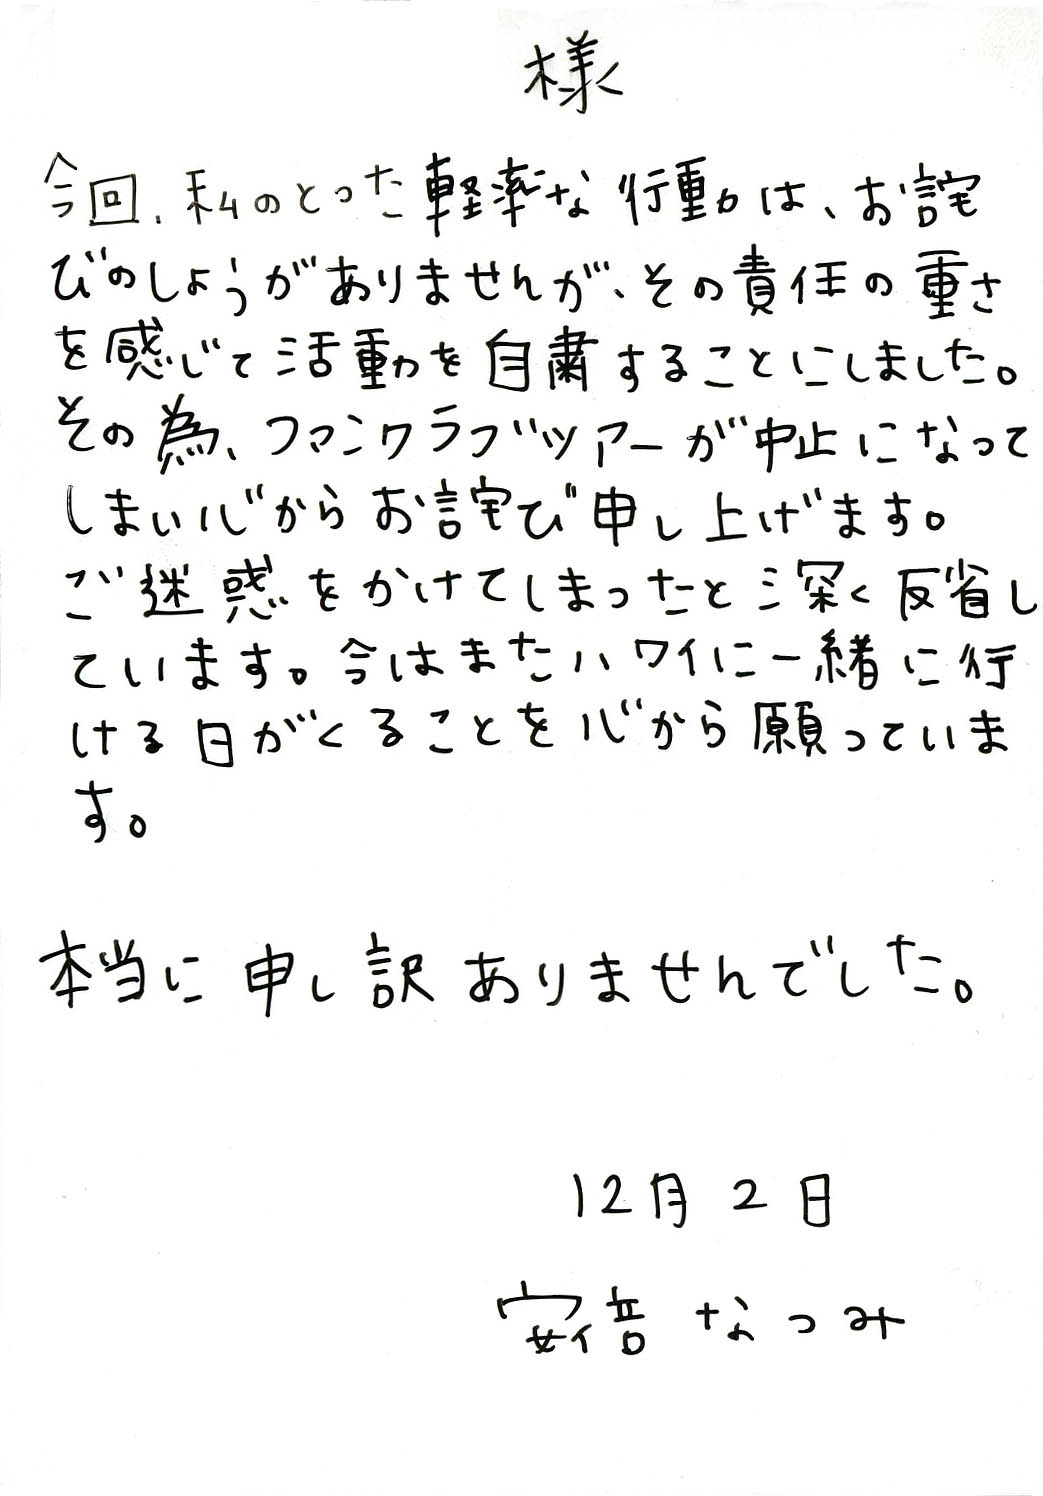 様
今回、私のとった軽率な行動は、お詫
びのしようがありませんが、その責任の重さ
を感じて活動を自粛することにしました。
その為、ファンクラブツアーが中止になって
しまい心からお詫び申し上げます。
ご迷惑をかけてしまったと深く反省し
ています。今はまたハワイに一緒に行
ける日がくることを心から願っていま
す。
本当に申し訳ありませんでした。
12月2日
安倍なつみ